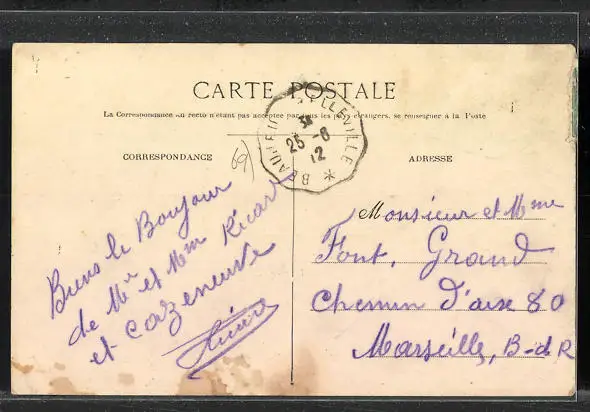 CARTE POSTALE
La Correspondance au recto n'étant pas acceptée par tous les pays étrangers, se renseigner à la Poste
CORRESPONDANCE
ADRESSE
69)
25 -8
12
Biens le Bonjour
de Mr et Mm Ricard
et Cazeneuve
Monsieur et Mme
Font, Grand
Chemin D'aix 80
Marseille, B-d R